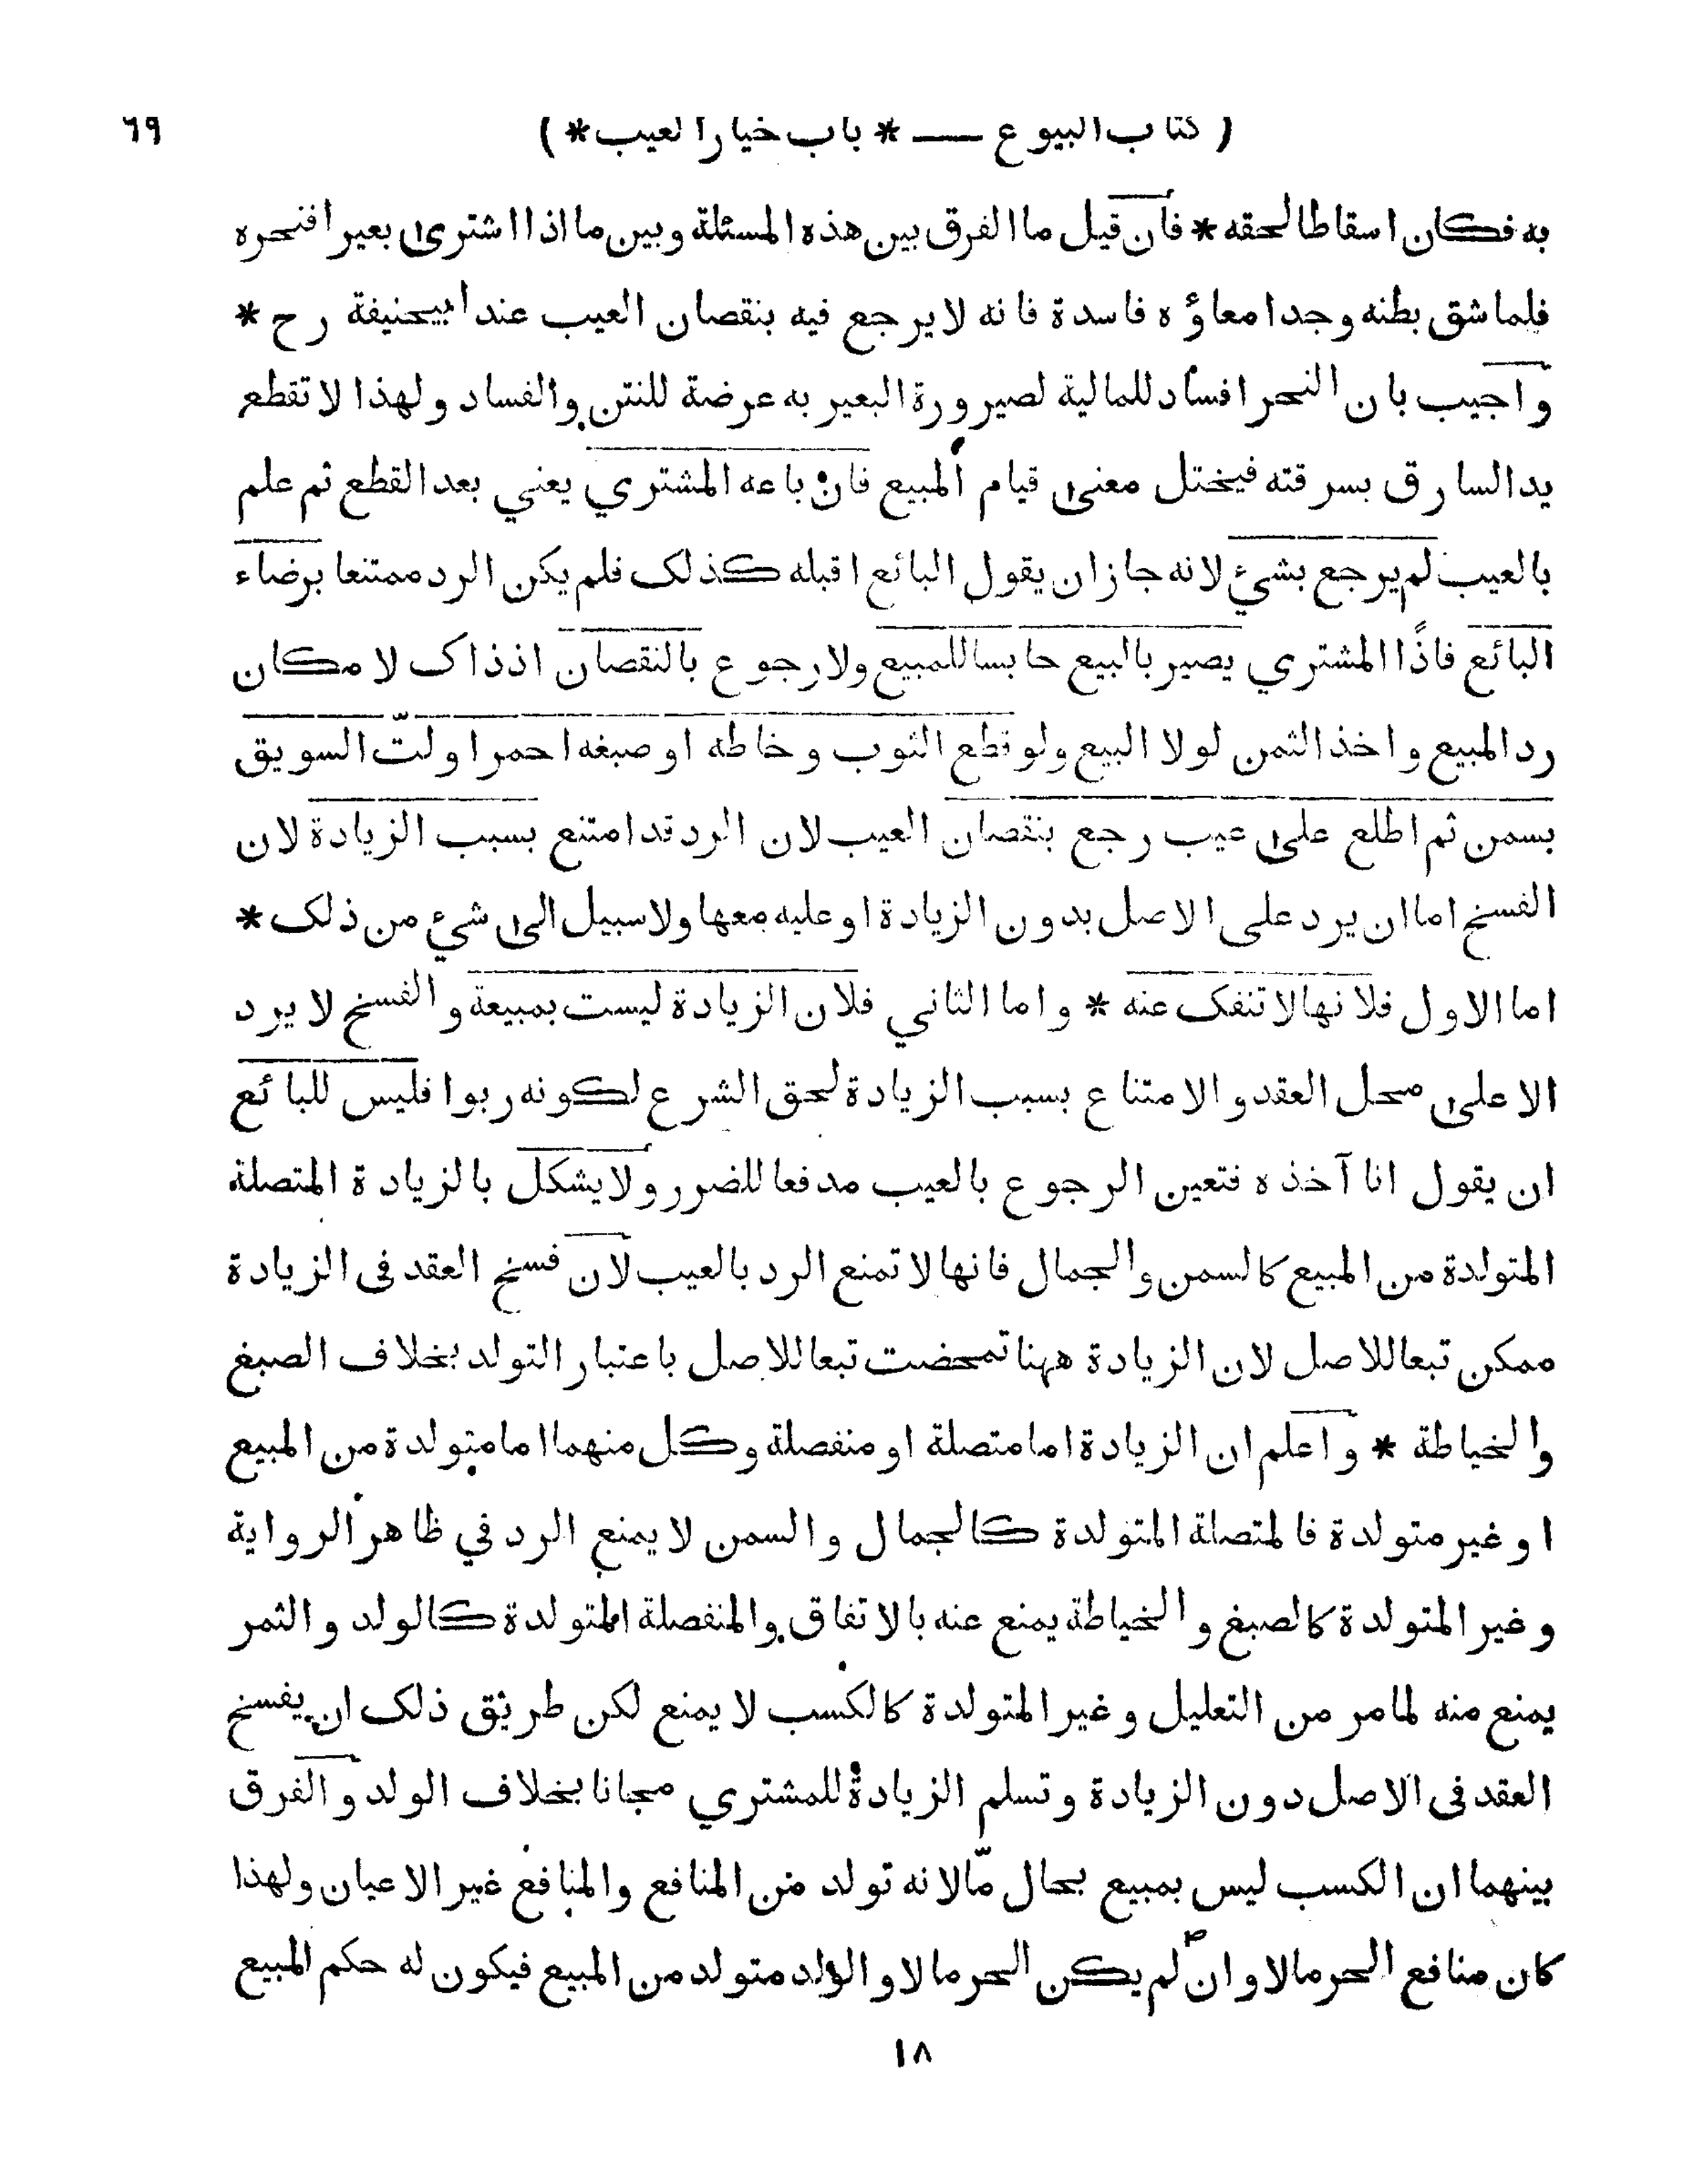 ( كتاب البيوع — * باب خيار العيب * )
٦٩
به فكان اسقاطا لحقه * فان قيل ما الفرق بين هذه المسئلة وبين ما اذا اشترى بعيرا فنحره
فلما شق بطنه وجد امعاؤه فاسدة فانه لا يرجع فيه بنقصان العيب عند ابيحنيفة رح *
واجيب بان النحر افساد للمالية لصيرورة البعير به عرضة للنتن والفساد ولهذا لا تقطع
يد السارق بسرقته فيختل معنى قيام المبيع فان باعه المشتري يعني بعد القطع ثم علم
بالعيب لم يرجع بشيء لانه جاز ان يقول البائع اقبله كذلك فلم يكن الرد ممتنعا برضاء
البائع فاذًا المشتري يصير بالبيع حابسا للمبيع ولا رجوع بالنقصان اذ ذاك لا مكان
رد المبيع واخذ الثمن لولا البيع ولو قطع الثوب وخاطه او صبغه احمر او لتّ السويق
بسمن ثم اطلع على عيب رجع بنقصان العيب لان الرد قد امتنع بسبب الزيادة لان
الفسخ اما ان يرد على الاصل بدون الزيادة او عليه معها ولا سبيل الى شيء من ذلك *
اما الاول فلانها لا تنفك عنه * واما الثاني فلان الزيادة ليست بمبيعة والفسخ لا يرد
الا على محل العقد والامتناع بسبب الزيادة لحق الشرع لكونه ربوا فليس للبائع
ان يقول انا آخذه فتعين الرجوع بالعيب مدفعا للضرر ولا يشكل بالزيادة المتصلة
المتولدة من المبيع كالسمن والجمال فانها لا تمنع الرد بالعيب لان فسخ العقد في الزيادة
ممكن تبعا للاصل لان الزيادة ههنا تمحضت تبعا للاصل باعتبار التولد بخلاف الصبغ
والخياطة * واعلم ان الزيادة اما متصلة او منفصلة وكل منهما اما متولدة من المبيع
او غير متولدة فالمتصلة المتولدة كالجمال والسمن لا يمنع الرد في ظاهر الرواية
وغير المتولدة كالصبغ والخياطة يمنع عنه بالاتفاق والمنفصلة المتولدة كالولد والثمر
يمنع منه لما مر من التعليل وغير المتولدة كالكسب لا يمنع لكن طريق ذلك ان يفسخ
العقد في الاصل دون الزيادة وتسلم الزيادة للمشتري مجانا بخلاف الولد والفرق
بينهما ان الكسب ليس بمبيع بحال مّا لانه تولد من المنافع والمنافع غير الاعيان ولهذا
كان منافع الحر مالا وان لم يكن الحر مالا والولد متولد من المبيع فيكون له حكم المبيع
١٨